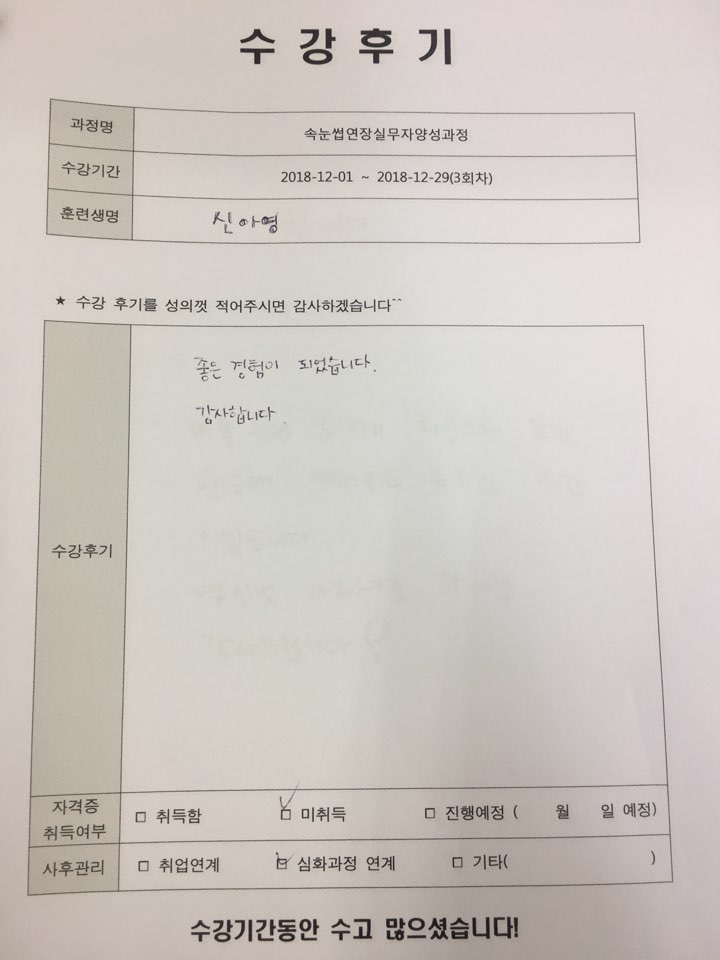 수강후기
과정명 속눈썹연장실무자양성과정
수강기간 2018-12-01 ~ 2018-12-29(3회차)
훈련생명 신아영
★ 수강 후기를 성의껏 적어주시면 감사하겠습니다^^
좋은 경험이 되었습니다.
감사합니다.
수강후기
자격증
취득여부 □ 취득함 ☑ 미취득 □ 진행예정 ( 월 일 예정)
사후관리 □ 취업연계 ☑ 심화과정 연계 □ 기타( )
수강기간동안 수고 많으셨습니다!